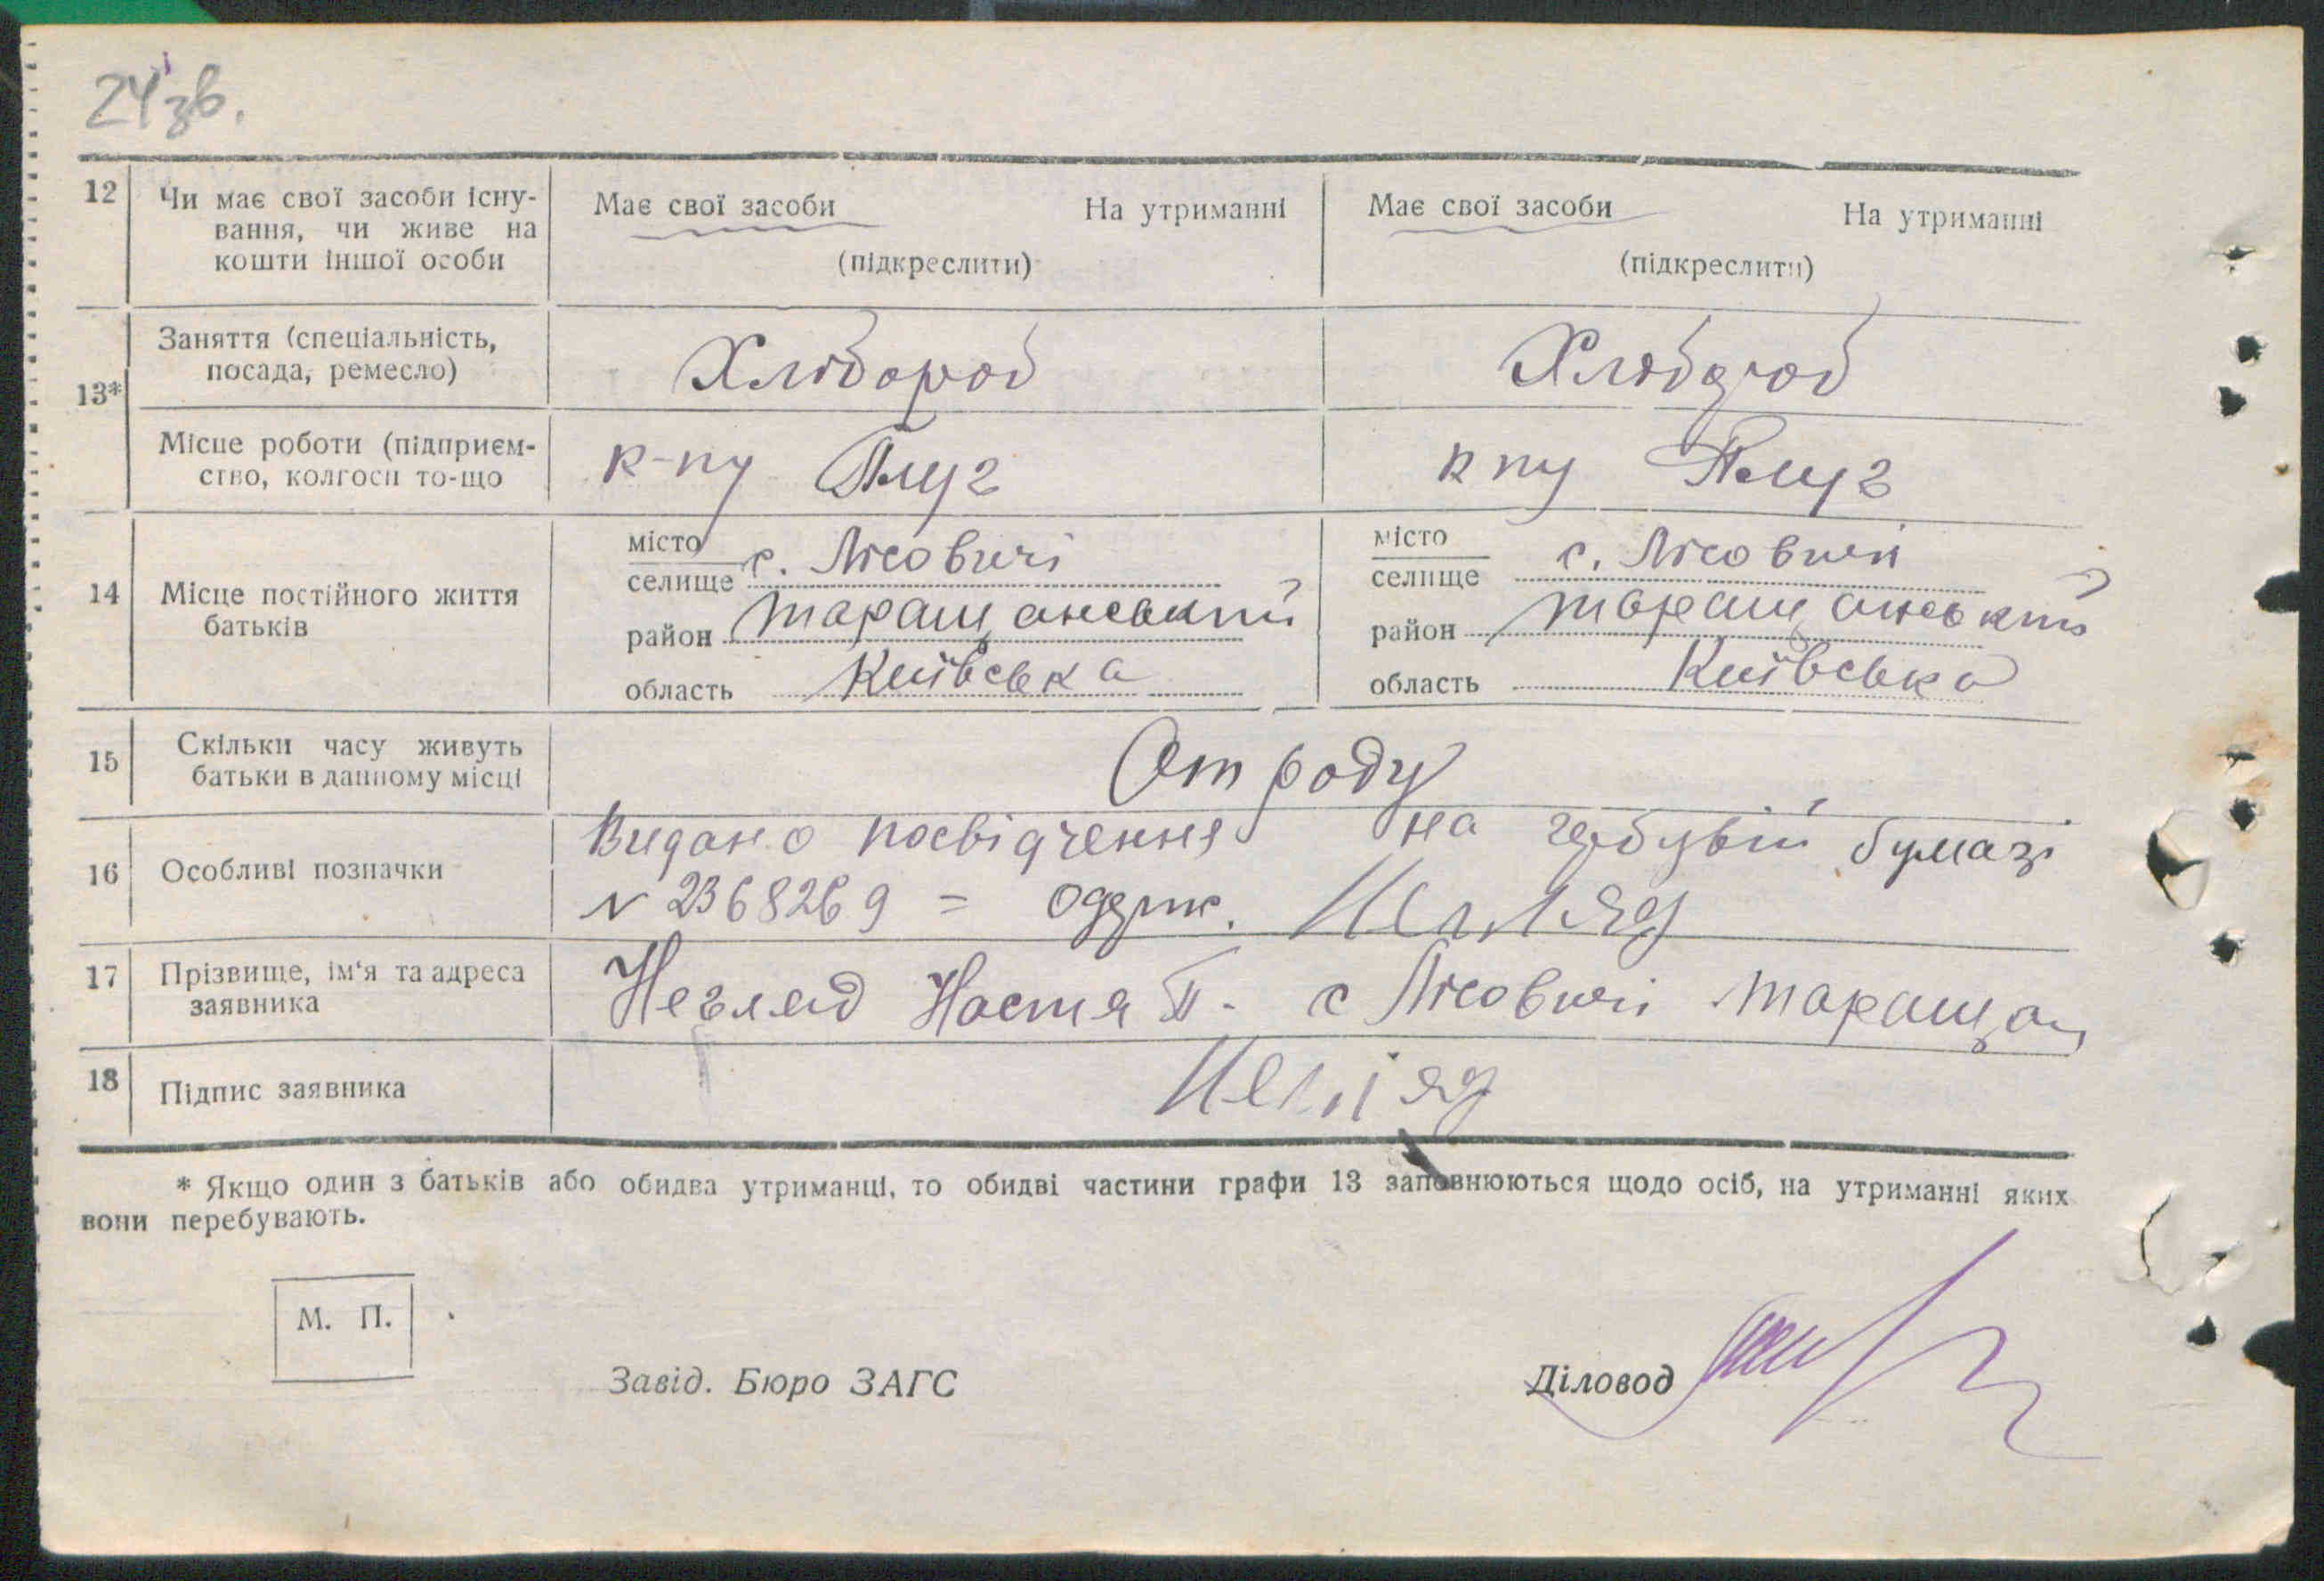 24 зв.
12 Чи має свої засоби існу- Має свої засоби На утриманні Має свої засоби На утриманні
вання, чи живе на
кошти іншої особи (підкреслити) (підкреслити)
13* Заняття (спеціальність, Хлібороб Хлібороб
посада, ремесло)
Місце роботи (підприєм- к-пу Плуг к пу Плуг
ство, колгосп то-що
14 Місце постійного життя
батьків
місто
селище с. Лісовичі
район Таращанський
область Київська
місто
селище с. Лісовичі
район Таращанський
область Київська
15 Скільки часу живуть От роду
батьки в данному місці
16 Особливі позначки Видано посвідчення на гербувій бумазі
N 2368269 = одерж.
17 Прізвище, ім'я та адреса Негляд Настя П. с Лісовичі Таращан
заявника
18 Підпис заявника
* Якщо один з батьків або обидва утриманці, то обидві частини графи 13 заповнюються щодо осіб, на утриманні яких
вони перебувають.
М. П.
Завід. Бюро ЗАГС Діловод